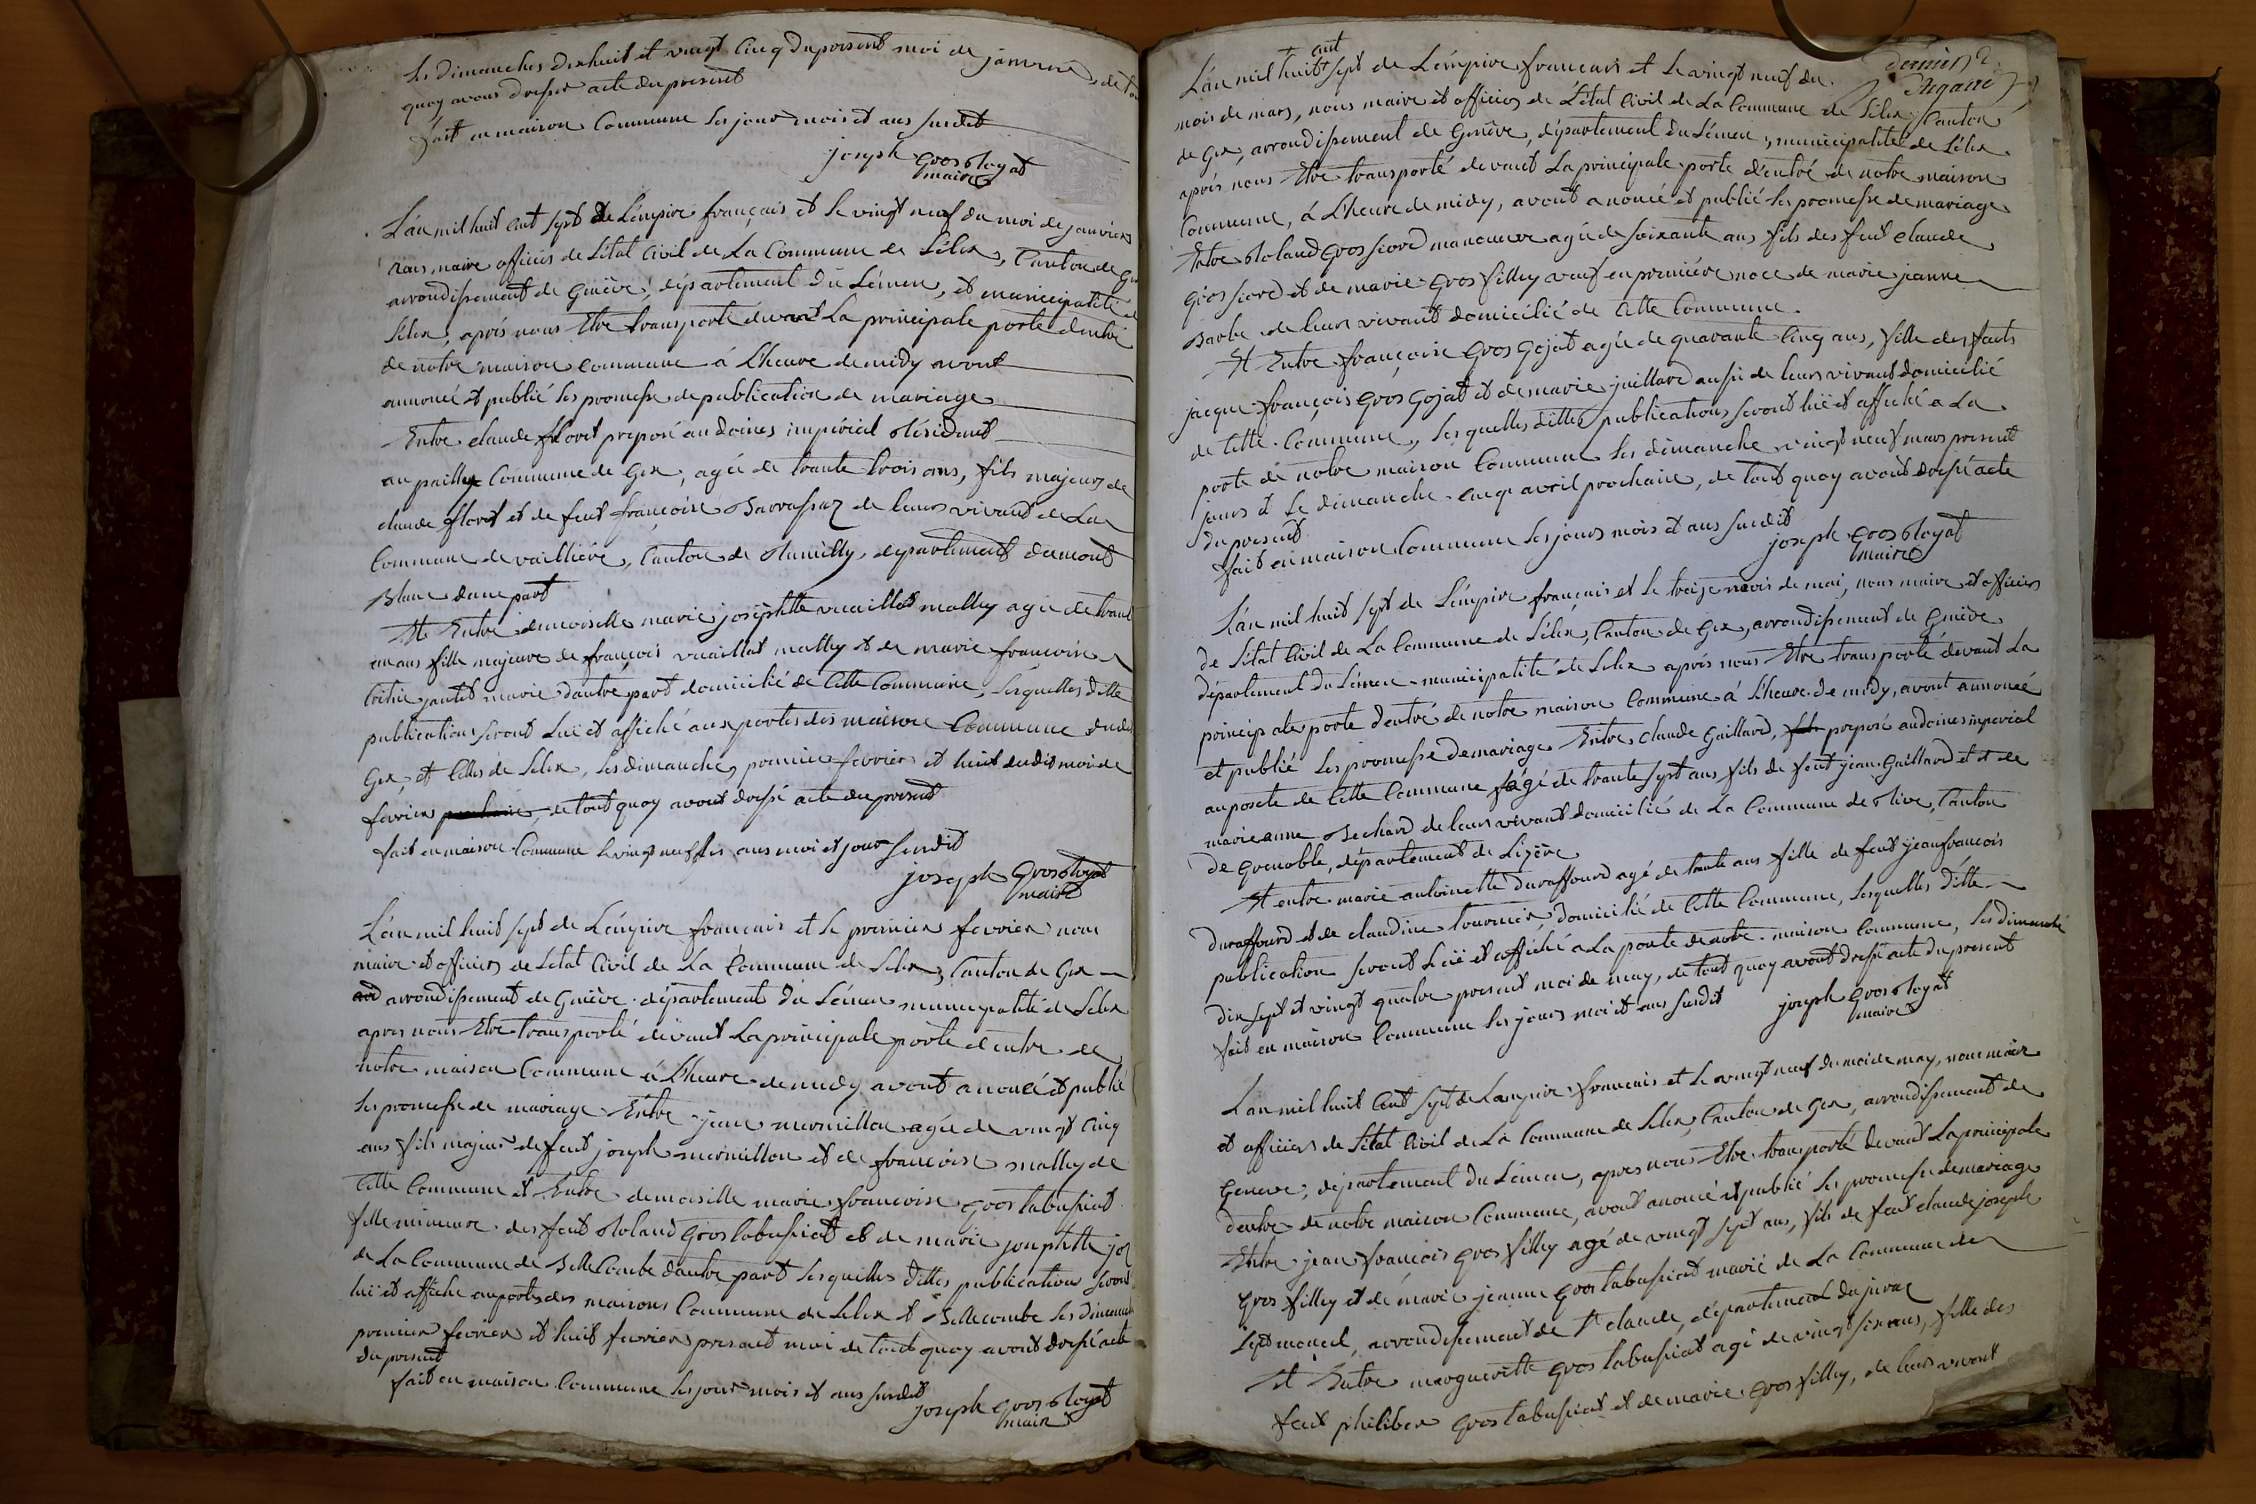 Les dimanches dixhuit et vingt cinq du present moi de janvier de tou
quoy avons dressé acte du present
fait en maison Commune Les jour mois et ans susdit
joseph Gros Royat
maire
L'an mil huit cent sept de L'émpire français et Le vingt neuf du moi de janvier
nous, maire officier de L'état Civil de La Commune de Lélex, Canton de Gex
arrondissement de Genève, département du Léman, et municipalité de
Lélex, aprés nous Etre transporté devant La principale porte d'entré
de notre maison commune á L'heure de midy avont
annoncé et publié Les promesse de publication de mariage
Entre claude floret preposé au doines impérial Résident
au pailly Commune de Gex, agée de trante trois ans, fils majeur de
claude floret et de feut françoise Barrassaz de leurs vivant de La
Commune de vaillière, Canton de Rumilly, departement du mont
Blanc d'une part
Et Entre demoiselle marie joséphtte vuaillat malley agée de trant
un ans fille majeure de françois vuaillat malley et de marie françoise
marie d'autre part domicilié de Cette Commune, Lesquelles ditte
publication seront Luë et affiché aux portes des maison Commune dudit
Gex, et Celles de Lélex, Les dimanche, premier fevrier et huit dudit moi de
fevrier, de tout quoy avont dressé acte du present
fait en maison Commune le vingt neuf Les ans moi et jour susdit
joseph Gros Royat
maire
L'an mil huit sept de L'émpire français et Le premier fevrier nous
maire et officier de L'etat Civil de La Commune de Lélex, Canton de Gex
arrondissement de Genève, département du Léman municipalité de Lélex
aprés nous Etre transporté devant La principale porte d'entre de
notre maison Commune á L'heure de midy avont anoncé et publié
Les promesse de mariage Entre jean mermillon agée de vingt Cinq
ans fils majeur de feut joseph mermillon et de françoise malley de
Cette Commune et Entre demoiselle marie françoise gros tabussiat
fille mineure des feut Roland gros tabussiat et de marie josephtte
de La Commune de Bellecombe d'autre part Lesquelles dittes publication seront
luë et affiche au portes des maisons Commune de Lélex et Bellecombe Les dimanche
premier fevrier et huit fevrier present moi de tout quoy avont dressé acte
du present
fait en maison Commune Les jour mois et ans susdit
joseph Gros Royat
maire
dernier
L'an mil huit cent sept de L'émpire français et Le vingt neuf du
mois de mars, nous maire et officier de L'état Civil de La Commune de Lélex Canton
de Gex, arrondissement de Genève, département du Léman, municipalité de Lélex
aprés nous Etre transporté devant La principale porte d'entré de notre maison
Commune, á L'heure de midy, avont anoncé et publié Les promesse de mariage
Entre Roland gros fiord manoeuvre agée de soixante ans fils des feut claude
gros fiord et de marie gros filley veuf en première noce de marie jeanne
Barbe de leurs vivant domicilié de Cette Commune.
Et Entre françoise gros gojat agée de quarante Cinq ans, fille des feut
jacque françois gros gojat et de marie juillard aussi de leurs vivant domicilié
de Cette Commune, Lesquelles dittes publications seront lüe et affiché a La
porte de notre maison Commune Les dimanche vingt neuf mars present
jours et Le dimanche cinq avril prochain, de tout quoy avont dressé acte
du present
fait en maison Commune Les jours mois et ans susdit
joseph Gros Royat
maire
L'an mil huit sept de L'émpire français et Le treize mois de mai, nous maire et officier
de L'état Civil de La Commune de Lélex, Canton de Gex, arrondissement de Genève
département du Léman municipalité de Lelex aprés nous Etre transporté devant La
principale porte d'entré de notre maison Commune á L'heure de midy, avont annoncé
et publié Les promesse de mariage Entre claude Gaillard, preposé au doines imperial
au poste de Cette Commune agé de trante sept ans, fils de feut jean Gaillard et de
marie anne Bechard de leurs vivant domicilié de La Commune de Rive, Canton
de Grenoble, département de L'izère
Et entre marie antoinette Duraffourd agé de trante ans fille de feut jean françois
Duraffourd et de claudine tournier domicilié de Cette Commune, Lesquelles ditte
publication seront Lüe et affiché a La porte de notre maison Commune, Les dimanche
dix sept et vingt quatre present moi de may, de tout quoy avont dressé acte du present
fait en maison Commune Les jours moi et ans susdit
joseph Gros Royat
maire
L'an mil huit Cent Sept de L'ampire français et Le vingt neuf du moi de may, nous maire
et officier de L'état Civil de La Commune de Lélex, Canton de Gex, arrondissement de
Geneve, département du Léman, aprés nous Etre transporté devant La principale
d'entre de notre maison Commune, avont anoncé et publié Les promesse de mariage
Entre jean françois gros filley agé de vingt sept ans, fils de feut claude joseph
gros filley et de marie jeanne gros tabussiat marié de La Commune de
Septmoncel, arrondissement de St claude, département du jura
Et Entre margueritte gros tabussiat agé de vingt six ans, fille des
feut philiber gros tabussiat et de marie gros filley, de leurs vivant